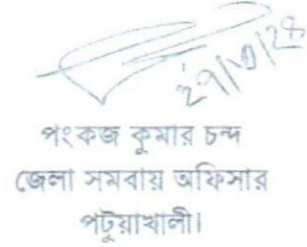 ২৭/৩/২৪
পংকজ কুমার চন্দ
জেলা সমবায় অফিসার
পটুয়াখালী।